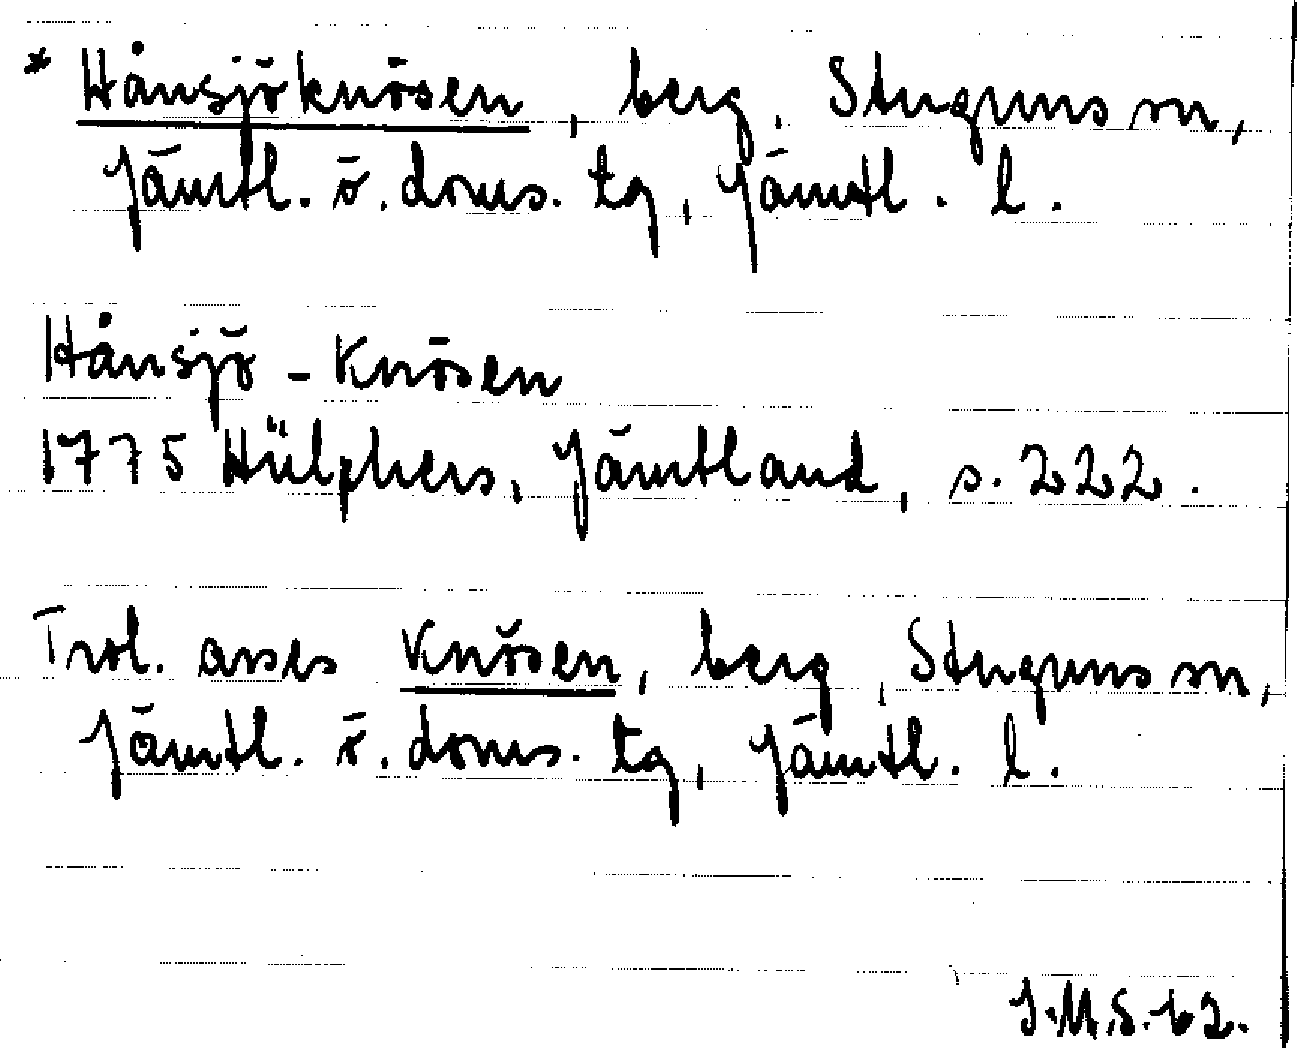 * Hånsjöknösen, berg, Stuguns sn,
Jämtl. ö. doms. tg, Jämtl. l.
Hånsjö - Knösen
1775 Hülphers, Jämtland, s. 222.
Trol. avses Knösen, berg, Stuguns sn,
Jämtl. ö. doms. tg, Jämtl. l.
J.M.S. 62.